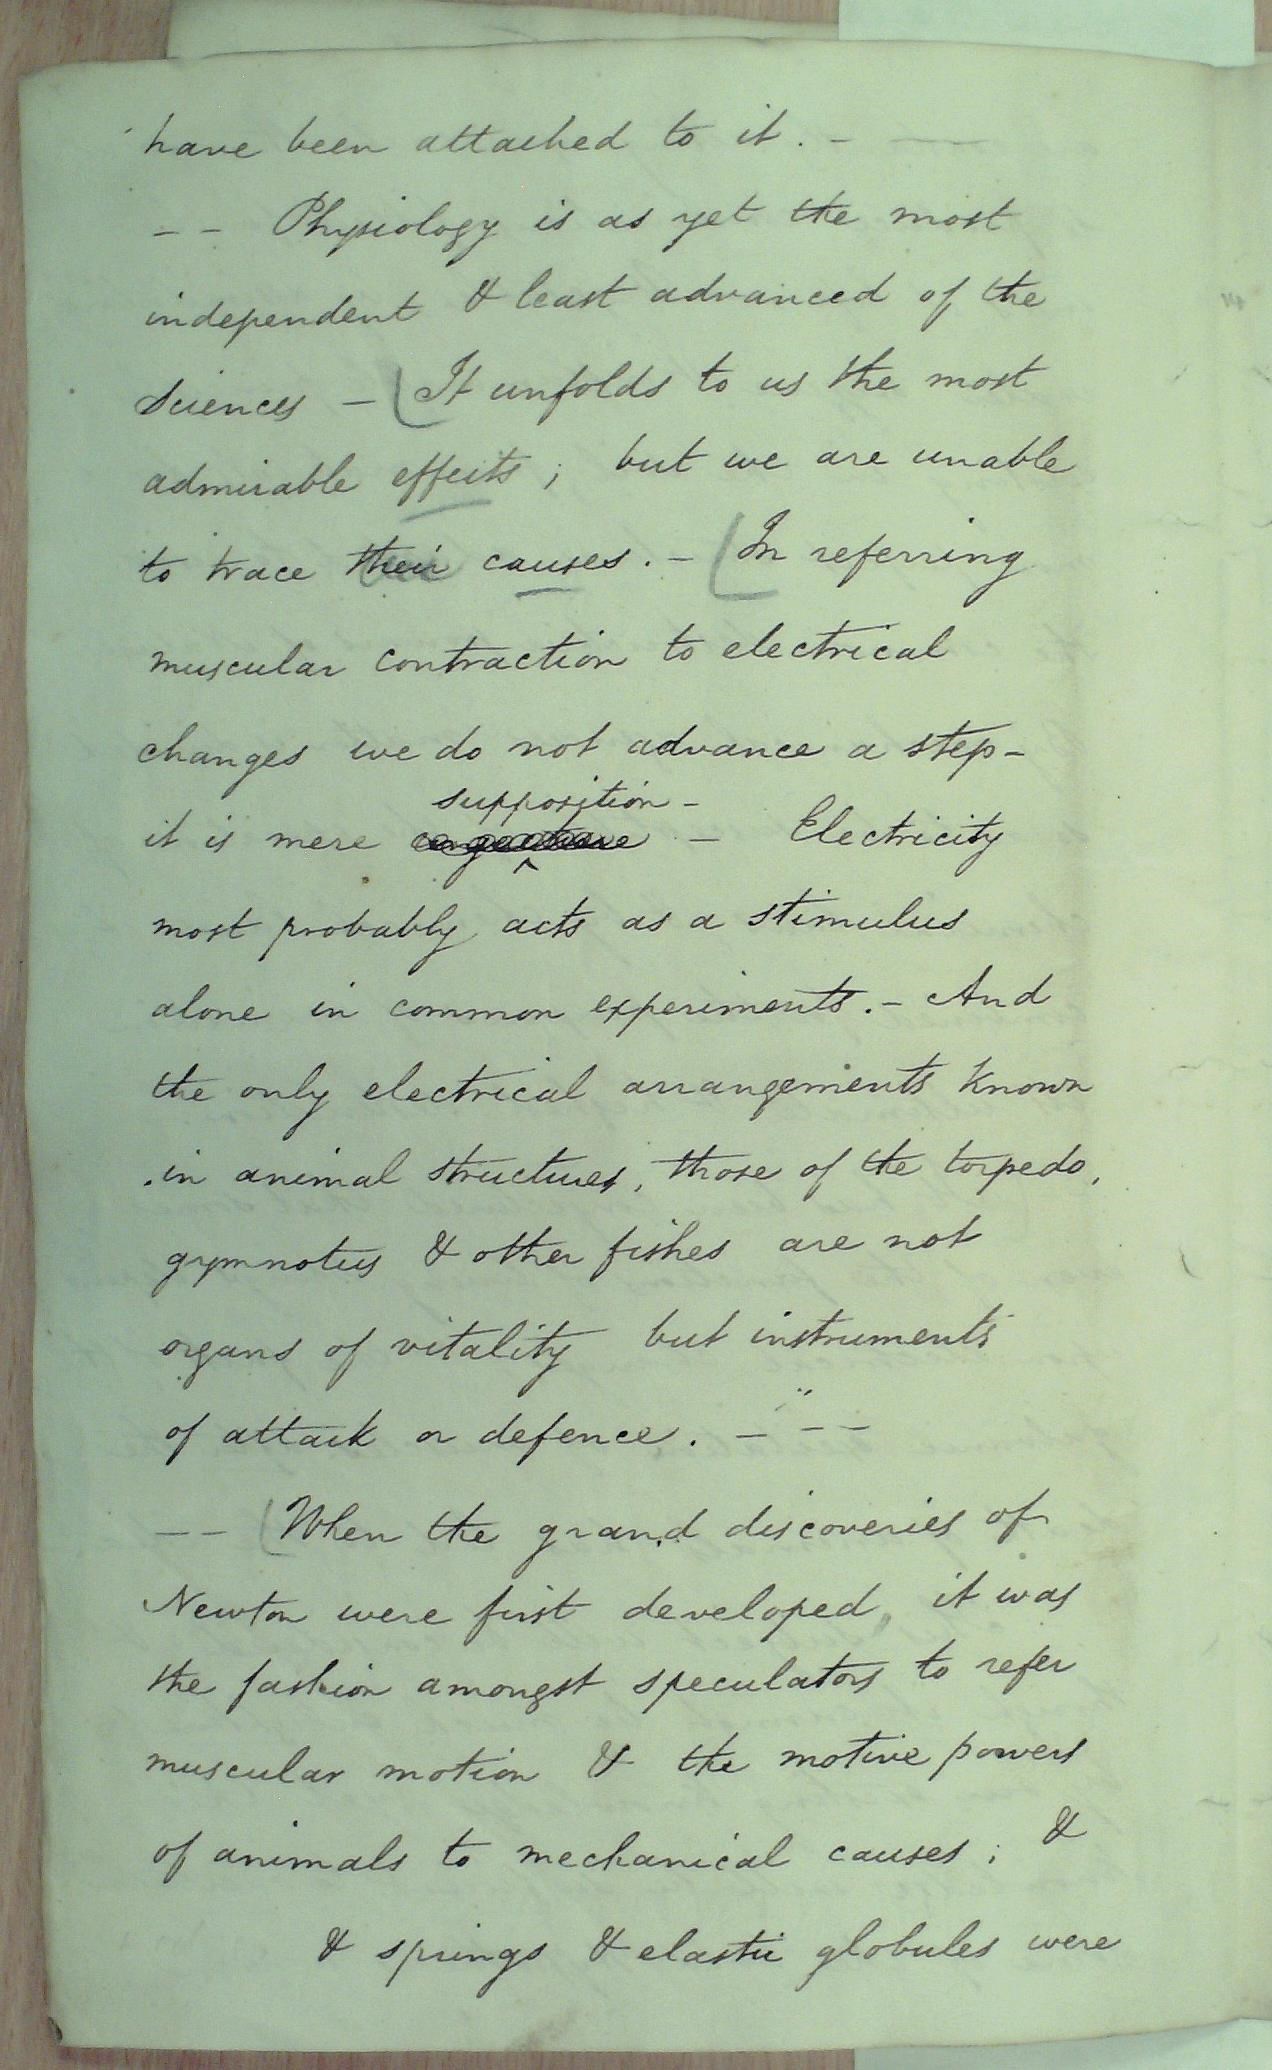 have been attached to it. - —
— — Physiology is as yet the most
independent & least advanced of the
Sciences — It unfolds to us the most
admirable effects; but we are unable
to trace their causes. — In referring
muscular contraction to electrical
changes we do not advance a step -
supposition -
it is mere — Electricity
most probably acts as a stimulus
alone in common experiments. - And
the only electrical arrangements known
in animal structures, those of the torpedo,
gymnotus & other fishes are not
organs of vitality but instruments
of attack or defence. — — —
— — When the grand discoveries of
Newton were first developed, it was
the fashion amongst speculators to refer
muscular motion & the motive powers
of animals to mechanical causes; &
& springs & elastic globules were